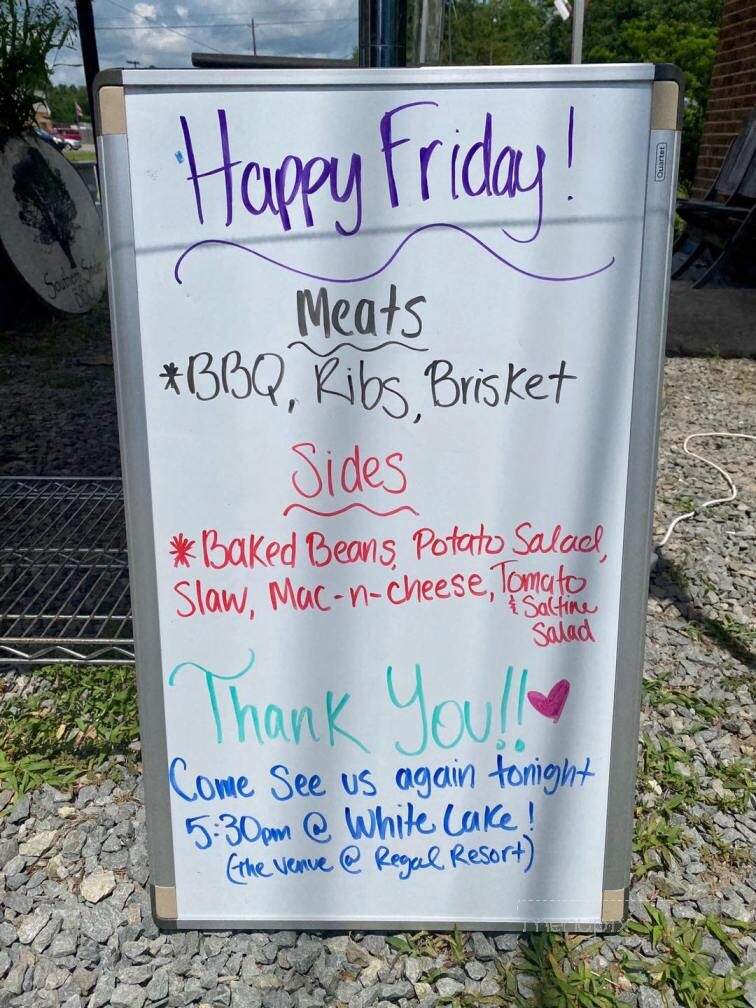 Happy Friday!
Quartet
Meats
*BBQ, Ribs, Brisket
Sides
*Baked Beans, Potato Salad,
Slaw, Mac-n-cheese, Tomato
& Saltine
Salad
Thank You!!
Come See us again tonight
5:30pm @ White Lake!
(the venue @ Regal Resort)
Southern